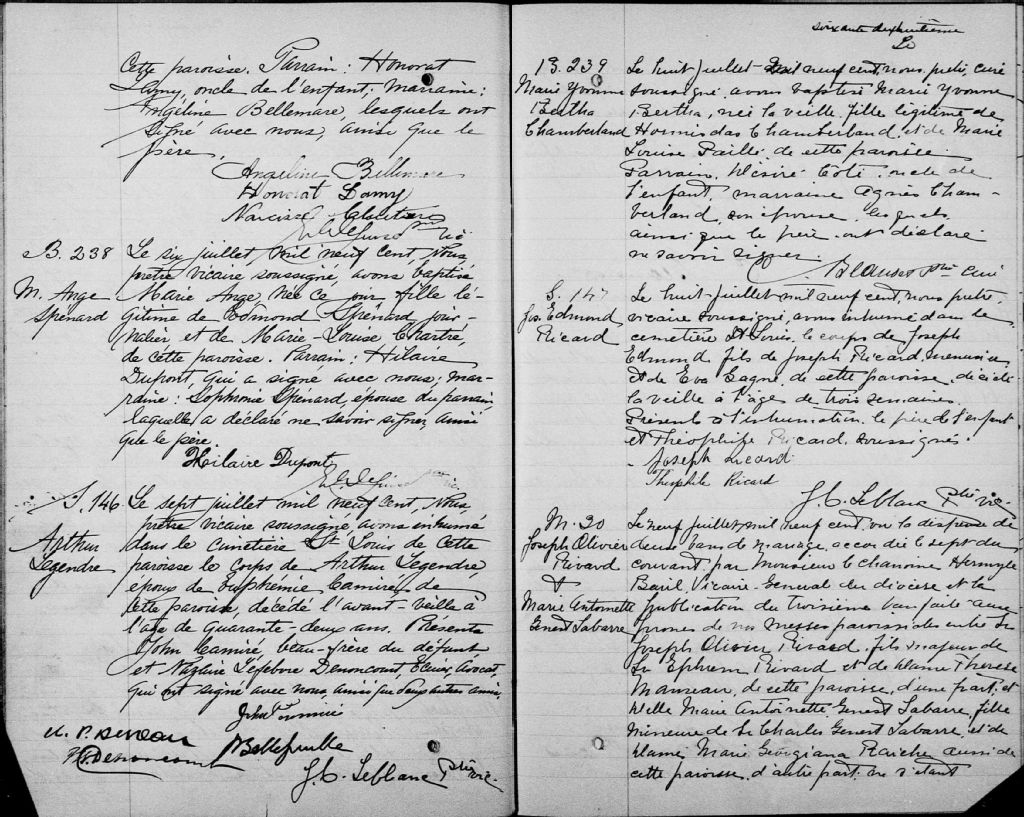 Cette paroisse. Parrain: Honorat
Lamy, oncle de l'enfant; marraine:
Angéline Bellemare, lesquels ont
signé avec nous, ainsi que le
père.
Angéline Bellemare
Honorat Lamy
B. 238
M. Ange
Spénard
Le six juillet mil neuf cent, Nous,
prêtre vicaire soussigné, avons baptisé
Marie Ange, née ce jour, fille lé-
gitime de Edmond Spénard jour-
nalier et de Marie-Louise Chartré,
de cette paroisse. Parrain: Hilaire
Dupont, qui a signé avec nous; mar-
raine: Sophronie Spénard, épouse du parrain,
laquelle a déclaré ne savoir signer, ainsi
que le père.
Hilaire Dupont
S. 146
Arthur
Legendre
Le sept juillet mil neuf cent, Nous
prêtre vicaire soussigné avons inhumé
dans le cimetière St Louis de cette
paroisse le corps de Arthur Legendre,
époux de Euphémie Camiré, de
cette paroisse, décédé l'avant-veille à
l'age de quarante-deux ans. Présents
John Camiré, beau-frère du défunt
et Nazaire Lefebvre Denoncourt, Ecuier, Avocat,
qui ont signé avec nous, ainsi que deux autres amis.
John Camiré
Bellefeuille
Denoncourt
J. C. Leblanc ptre vic.
soixante dixhuitième
B. 239
Marie Yvonne
Bertha
Chamberland
Le huit juillet mil neuf cent, nous, prêtre, curé
soussigné, avons baptisé Marie Yvonne
Bertha, née la veille, fille légitime de
Hormisdas Chamberland, et de Marie
Louise Paillé, de cette paroisse.
Parrain, Désiré Côté, oncle de
l'enfant, marraine Agnès Cham-
berland, son épouse, lesquels
ainsi que le père ont déclaré
ne savoir signer.
ptre curé
S. 147
Jos. Edmond
Ricard
Le huit juillet mil neuf cent, nous prêtre,
vicaire soussigné, avons inhumé dans le
cemetière St Louis, le corps de Joseph
Edmond fils de Joseph Ricard, menuisier,
et de Eva Gagné, de cette paroisse, décédé
la veille à l'âge de trois semaines.
Présents à l'inhumation, le père de l'enfant
et Théophile Ricard, soussignés.
Joseph Ricard
Théophile Ricard
J. C. Leblanc ptre vic.
M. 20
Joseph Olivier
Rivard
&
Marie Antoinette
Genest Labarre
Le neuf juillet, mil neuf cent, vu la dispense de
deux bans de mariage, accordée le sept du
courant par Monsieur le chanoine Hermyle
Baril, Vicaire Général du diocèse et la
publication du troisième ban faite aux
prones de nos messes paroissiales entre Sr
Joseph Olivier Rivard, fils majeur de
Sr Ephrem Rivard et de Dame Therese
Manseau, de cette paroisse, d'une part, et
Delle Marie Antoinette Genest Labarre, fille
mineure de Sr Charles Genest Labarre, et de
Dame Marie Georgiana Raiche aussi de
cette paroisse, d'autre part; ne s'étant